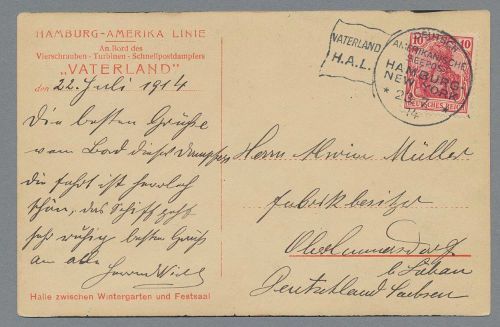 HAMBURG-AMERIKA LINIE
An Bord des
Vierschrauben-Turbinen-Schnellpostdampfers
„VATERLAND"
den 22. Juli 1914
Die besten Grüße
vom Bord dieses Dampfers
die Fahrt ist herrlich
schön, das Schiff geht
sehr ruhig besten Gruß
an alle
Halle zwischen Wintergarten und Festsaal
VATERLAND
H.A.L.
DEUTSCH-
AMERIKANISCHE
SEEPOST
HAMBURG-
NEW YORK
14
10 10
DEUTSCHES REICH
Herrn Alwin Müller
Fabrikbesitzer
b. Löbau
Deutschland Sachsen